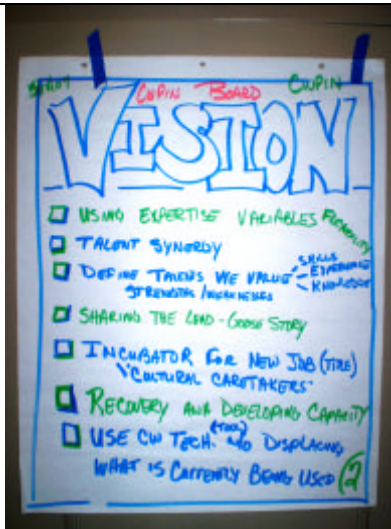 CWPIN BOARD CWPIN
VISION
USING EXPERTISE VARIABLES FLEXIBILITY
TALENT SYNERGY
DEFINE TALENTS WE VALUE - SKILLS - EXPERIENCE - KNOWLEDGE
STRENGTHS/WEAKNESSES
SHARING THE LOAD - GOOSE STORY
INCUBATOR FOR NEW JOB (TITLE)
"CULTURAL CARETAKERS"
RECOVERY AND DEVELOPING CAPACITY
USE CW TECH. (TOOL) NO DISPLACING
WHAT IS CURRENTLY BEING USED 2